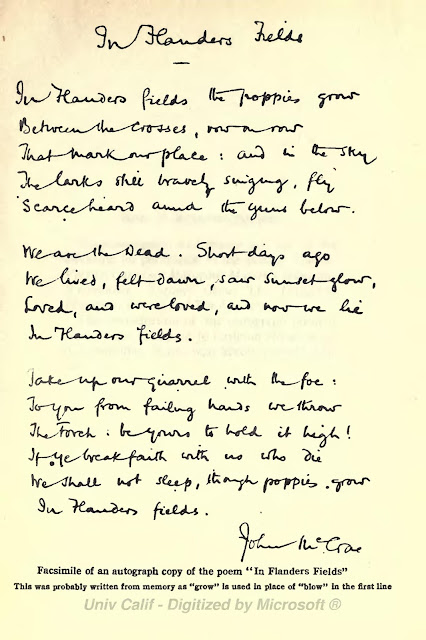 In Flanders Fields
In Flanders fields the poppies grow
Between the crosses, row on row
That mark our place : and in the sky
The larks still bravely singing, fly
Scarce heard amid the guns below.
We are the Dead. Short days ago
We lived, felt dawn, saw sunset glow,
Loved, and were loved, and now we lie
In Flanders fields.
Take up our quarrel with the foe :
To you from failing hands we throw
The Torch : be yours to hold it high!
If ye break faith with us who die
We shall not sleep, though poppies grow
In Flanders fields.
John McCrae
Facsimile of an autograph copy of the poem "In Flanders Fields"
This was probably written from memory as "grow" is used in place of "blow" in the first line
Univ Calif - Digitized by Microsoft ®